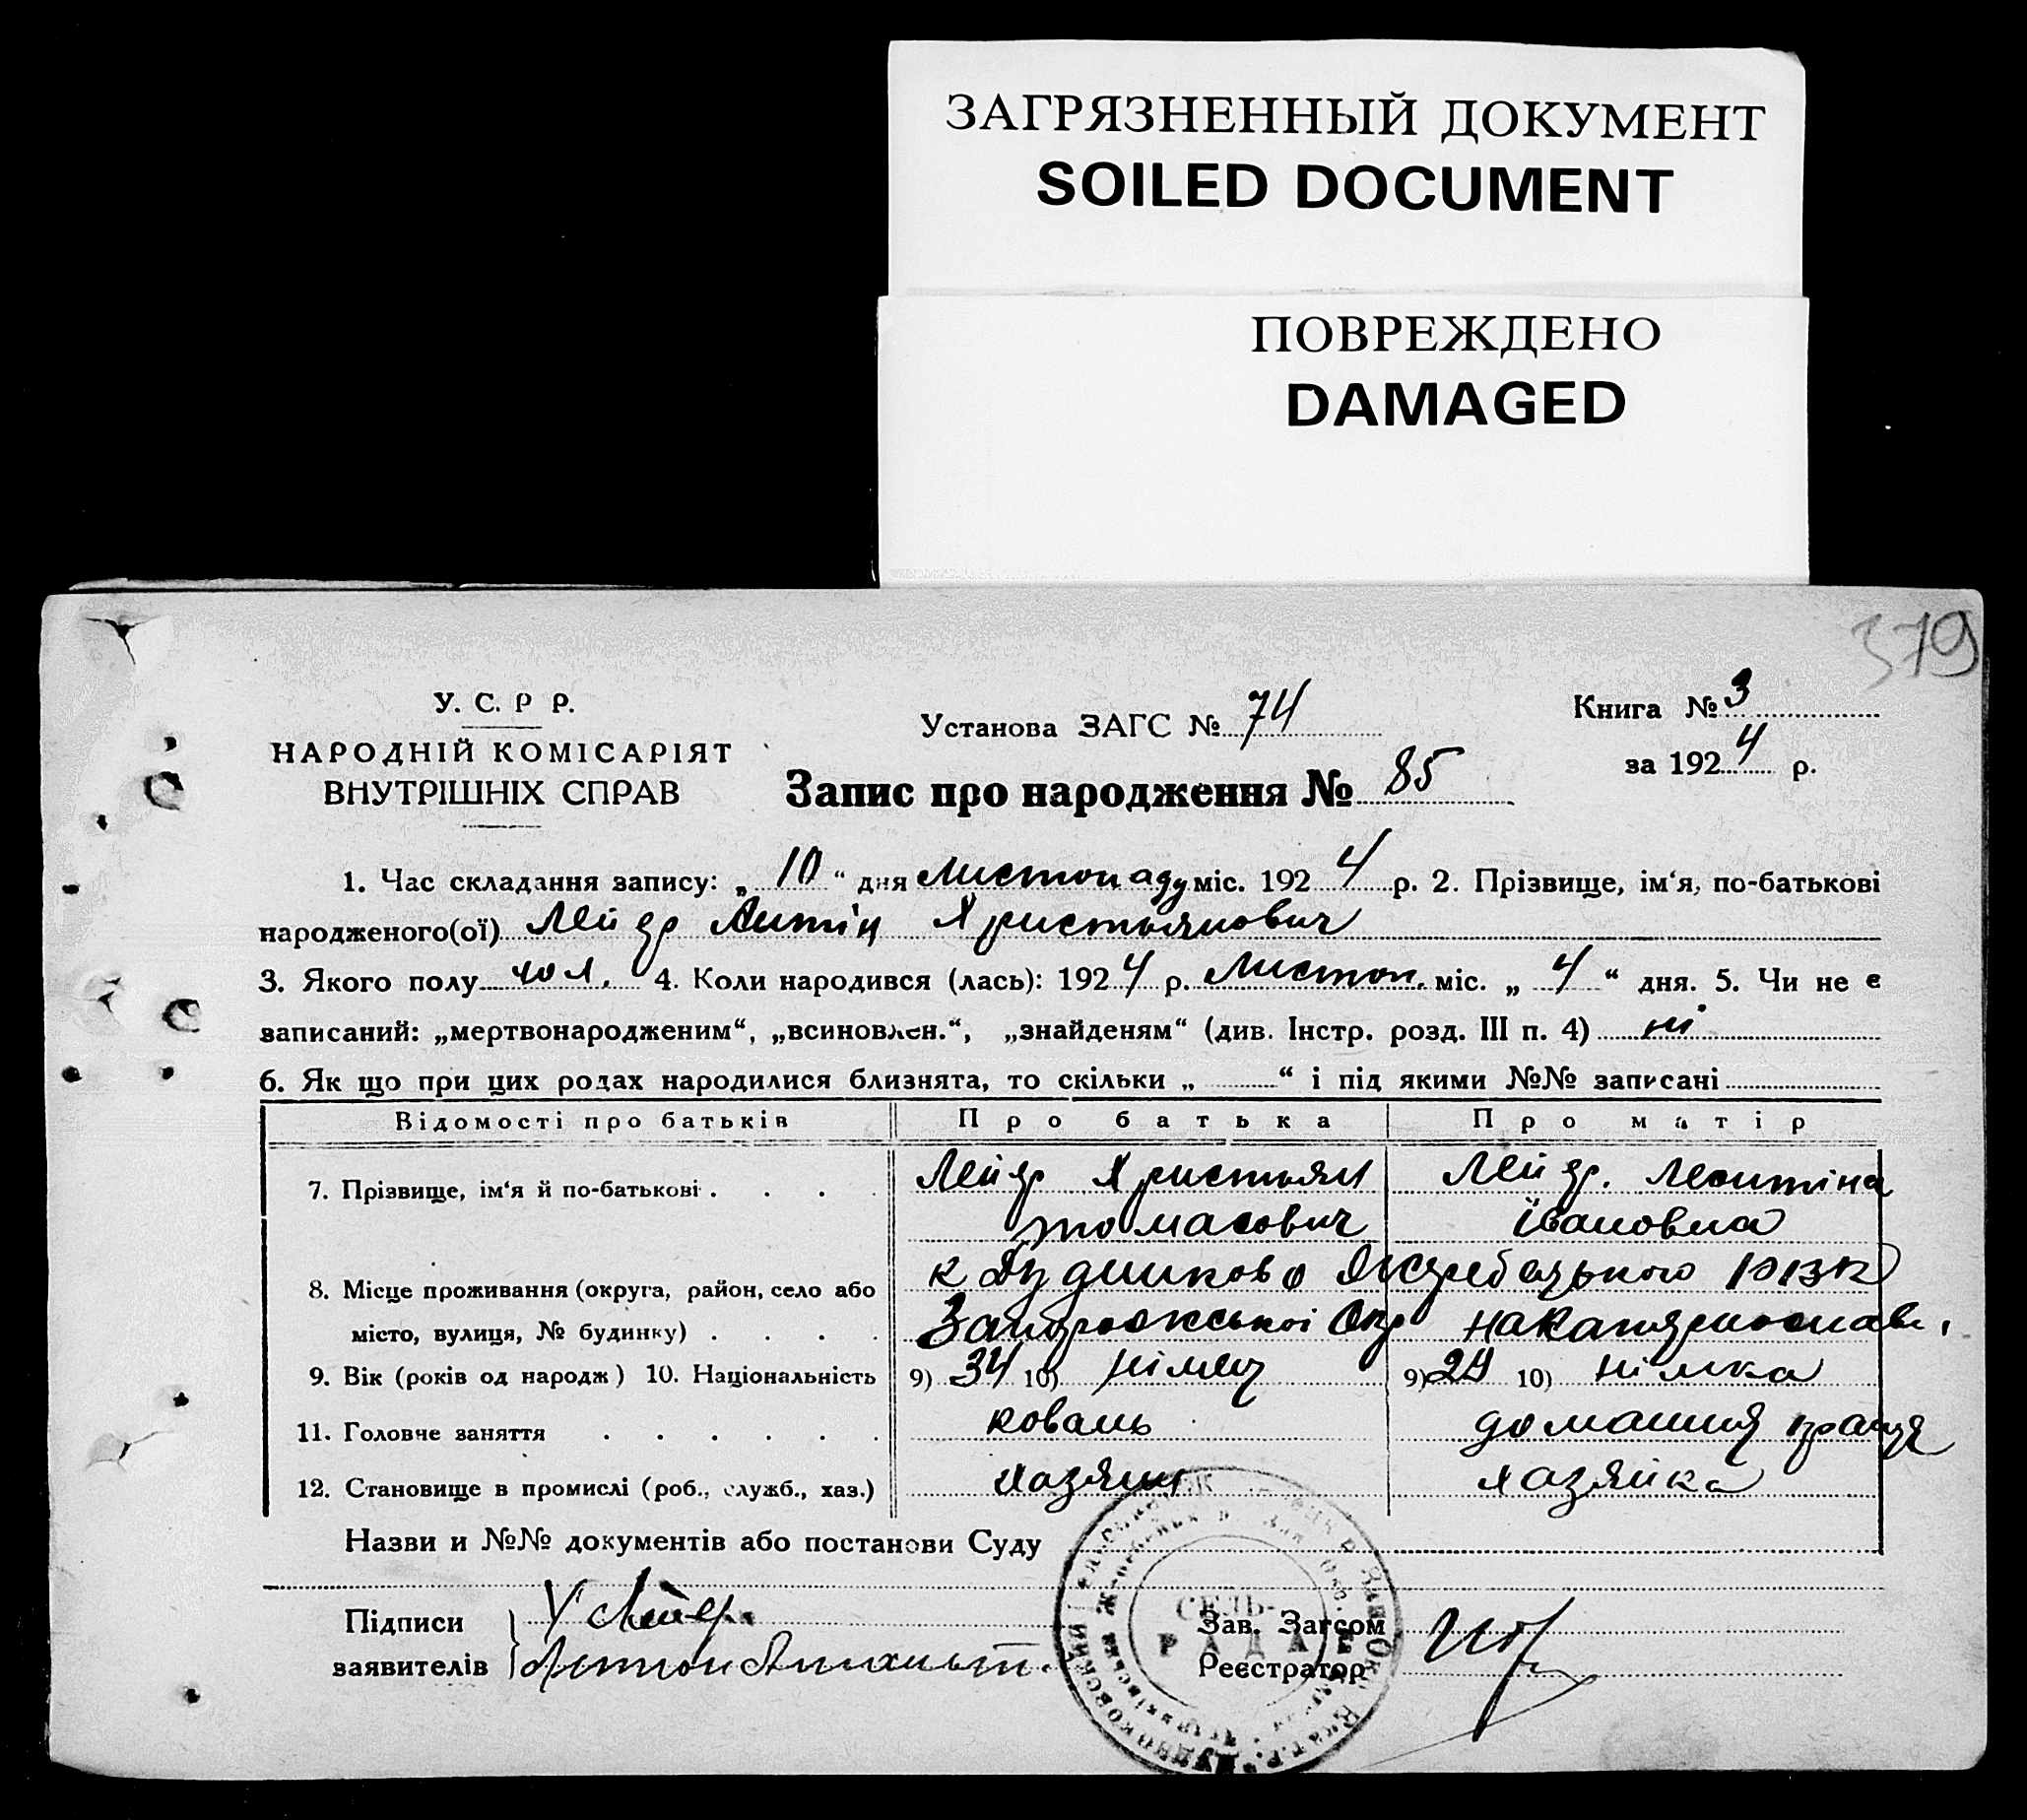 ЗАГРЯЗНЕННЫЙ ДОКУМЕНТ
SOILED DOCUMENT
ПОВРЕЖДЕНО
DAMAGED
379
У. С. Р Р.
НАРОДНІЙ КОМІСАРІЯТ
ВНУТРІШНІХ СПРАВ
Установа ЗАГС № 74
Запис про народження № 85
Книга № 3
за 1924 р.
1. Час складання запису: „10“ дня листопаду міс. 1924 р. 2. Прізвище, ім‘я, по-батькові
народженого(ої) Лейер Антін Християнович
3. Якого полу чол. 4. Коли народився (лась): 1924 р. Листоп. міс. „4“ дня. 5. Чи не є
записаний: „мертвонародженим“, „всиновлен.“, „знайденям“ (див. Інстр. розд. III п. 4) ні
6. Як що при цих родах народилися близнята, то скільки „ “ і під якими №№ записані
Відомості про батьків Про батька Про матір
7. Прізвище, ім‘я й по-батькові Лейер Християн Лейер. Леонтіна
Томасович Івановна
8. Місце проживання (округа, район, село або
місто, вулиця, № будинку) Запорожської Окр
9. Вік (років од народж) 10. Національність 9) 34 10) німець 9) 10) німка
11. Головне заняття коваль домашня праця
12. Становище в промислі (роб., служб., хаз.) хазяин хазяйка
Назви и №№ документів або постанови Суду
Підписи
заявителів
Зав. Загсом
Реєстратор
СЕЛЬ-
РАДА